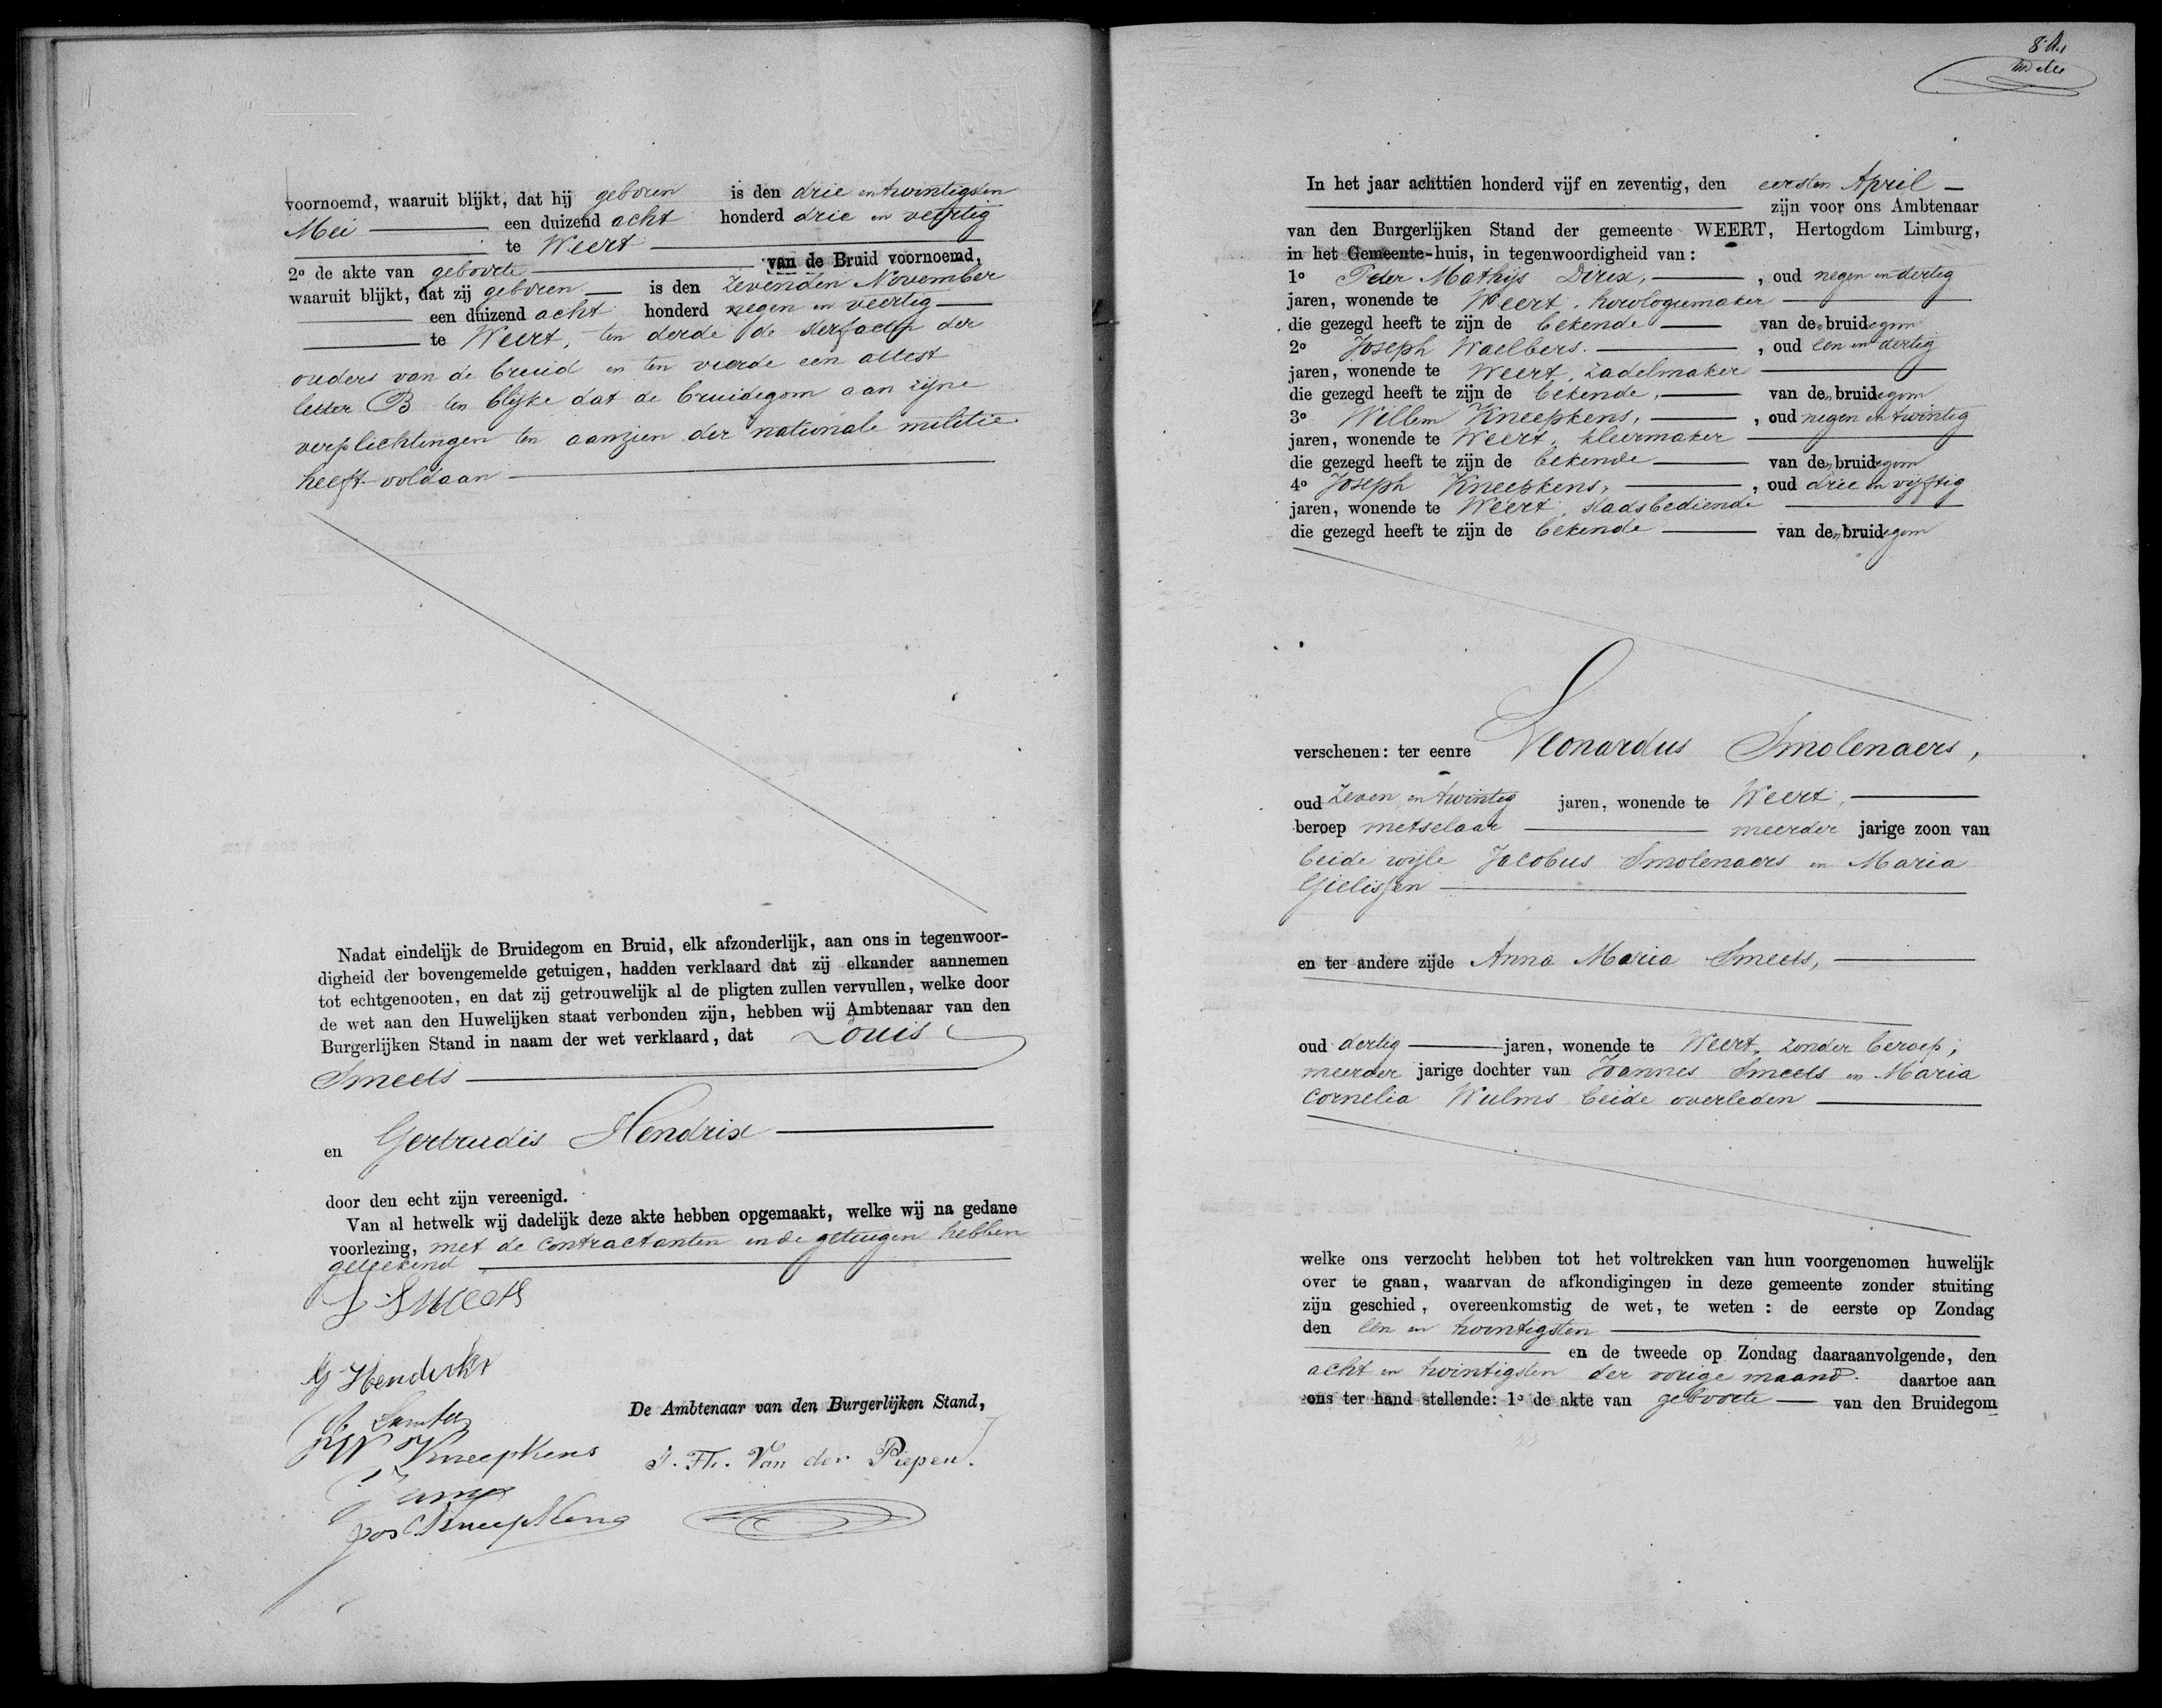 voornoemd, waaruit blijkt, dat hij geboren is den drie en twintigsten
Mei een duizend acht honderd drie en veertig
te Weert
2o de akte van geboorte van de Bruid voornoemd,
waaruit blijkt, dat zij geboren is den zevenden November
een duizend acht honderd negen en veertig
te Weert, ten derde de sterfacten der
ouders van de bruid en ten vierde een attest
letter B ten blijke dat de bruidegom aan zijne
verplichtingen ten aanzien der nationale militie
heeft voldaan
Nadat eindelijk de Bruidegom en Bruid, elk afzonderlijk, aan ons in tegenwoor-
digheid der bovengemelde getuigen, hadden verklaard dat zij elkander aannemen
tot echtgenooten, en dat zij getrouwelijk al de pligten zullen vervullen, welke door
de wet aan den Huwelijken staat verbonden zijn, hebben wij Ambtenaar van den
Burgerlijken Stand in naam der wet verklaard, dat Louis
Smeets
en Gertrudis Hendrix
door den echt zijn vereenigd.
Van al hetwelk wij dadelijk deze akte hebben opgemaakt, welke wij na gedane
voorlezing, met de contractanten en de getuigen hebben
geteekend
L Smeets
G Hendrikx
De Ambtenaar van den Burgerlijken Stand,
W Kneepkens
J. Th. Van der Piepen.
Jos Kneepkens
8
In het jaar achttien honderd vijf en zeventig, den eersten April
zijn voor ons Ambtenaar
van den Burgerlijken Stand der gemeente WEERT, Hertogdom Limburg,
in het Gemeente-huis, in tegenwoordigheid van:
1o Peter Mathijs Dirix, , oud negen en dertig
jaren, wonende te Weert, horologiemaker
die gezegd heeft te zijn de bekende van den bruidegom
2o Joseph Waelbers. , oud een en dertig
jaren, wonende te Weert, zadelmaker
die gezegd heeft te zijn de bekende, van den bruidegom
3o Willem Kneepkens, , oud negen en twintig
jaren, wonende te Weert, kleermaker
die gezegd heeft te zijn de bekende van den bruidegom
4o Joseph Kneepkens, , oud drie en vijftig
jaren, wonende te Weert, stadsbediende
die gezegd heeft te zijn de bekende van den bruidegom
verschenen: ter eenre Leonardus Smolenaers,
oud zeven en twintig jaren, wonende te Weert,
beroep metselaar meerder jarige zoon van
beide wijle Jacobus Smolenaers en Maria
Gielissen
en ter andere zijde Anna Maria Smeets,
oud dertig jaren, wonende te Weert, zonder beroep,
meerder jarige dochter van Joannes Smeets en Maria
Cornelia Wulms beide overleden
welke ons verzocht hebben tot het voltrekken van hun voorgenomen huwelijk
over te gaan, waarvan de afkondigingen in deze gemeente zonder stuiting
zijn geschied, overeenkomstig de wet, te weten: de eerste op Zondag
den een en twintigsten
en de tweede op Zondag daaraanvolgende, den
acht en twintigsten der vorige maand. daartoe aan
ons ter hand stellende: 1o de akte van geboorte van den Bruidegom